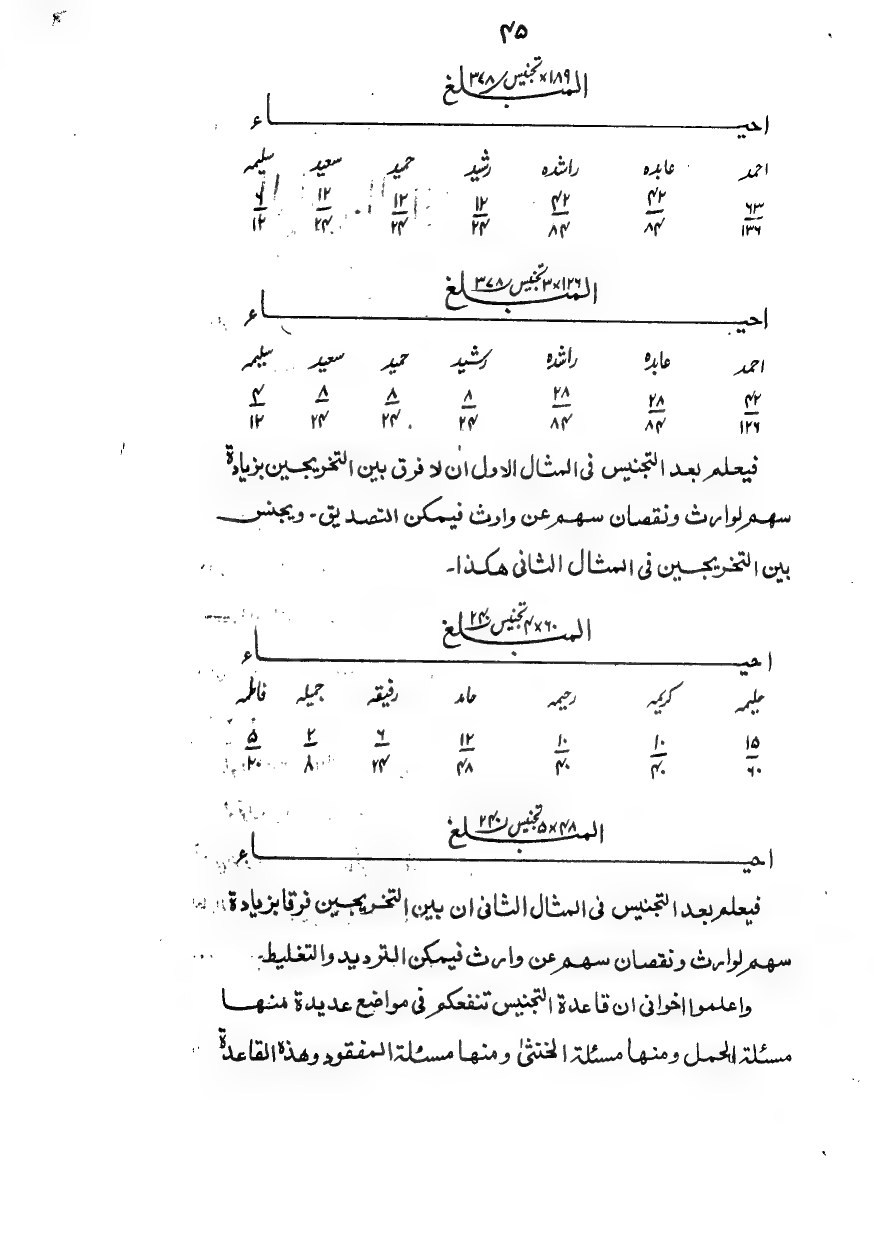 ۴۵
المبلغ ۱۸۹× تجنیس ۳۷۸
احیاء
احمد عابده راشده رشید حمید سعید سلیمه
۶۳ ۴۲ ۴۲ ۱۲ ۱۲ ۱۲ ۶
۱۳۶ ۸۴ ۸۴ ۲۴ ۲۴ ۲۴ ۱۲
المبلغ ۱۲۶×۳ تجنیس ۳۷۸
احیاء
احمد عابده راشده رشید حمید سعید سلیمه
۴۲ ۲۸ ۲۸ ۸ ۸ ۸ ۴
۱۲۶ ۸۴ ۸۴ ۲۴ ۲۴ ۲۴ ۱۲
فیعلم بعد التجنیس فی المثال الاول ان لا فرق بین التخریجین بزیادة
سهم لوارث ونقصان سهم عن وارث فیمکن التصدیق۔ ویجنس
بین التخریجین فی المثال الثانی هکذا۔
المبلغ ۶۰×۴ تجنیس ۲۴۰
احیاء
حلیمه کریمه رحیمه حامد رفیقه جمیله فاطمه
۱۵ ۱۰ ۱۰ ۱۲ ۶ ۲ ۵
۶۰ ۴۰ ۴۰ ۴۸ ۲۴ ۸ ۲۰
المبلغ ۴۸×۵ تجنیس ۲۴۰
احیاء
فیعلم بعد التجنیس فی المثال الثانی ان بین التخریجین فرقا بزیادة
سهم لوارث ونقصان سهم عن وارث فیمکن التردید والتغلیط۔
واعلموا اخوانی ان قاعدة التجنیس تنفعکم فی مواضع عدیدة منها
مسئلة الحمل ومنها مسئلة الخنثیٰ ومنها مسئلة المفقود وهذه القاعدة